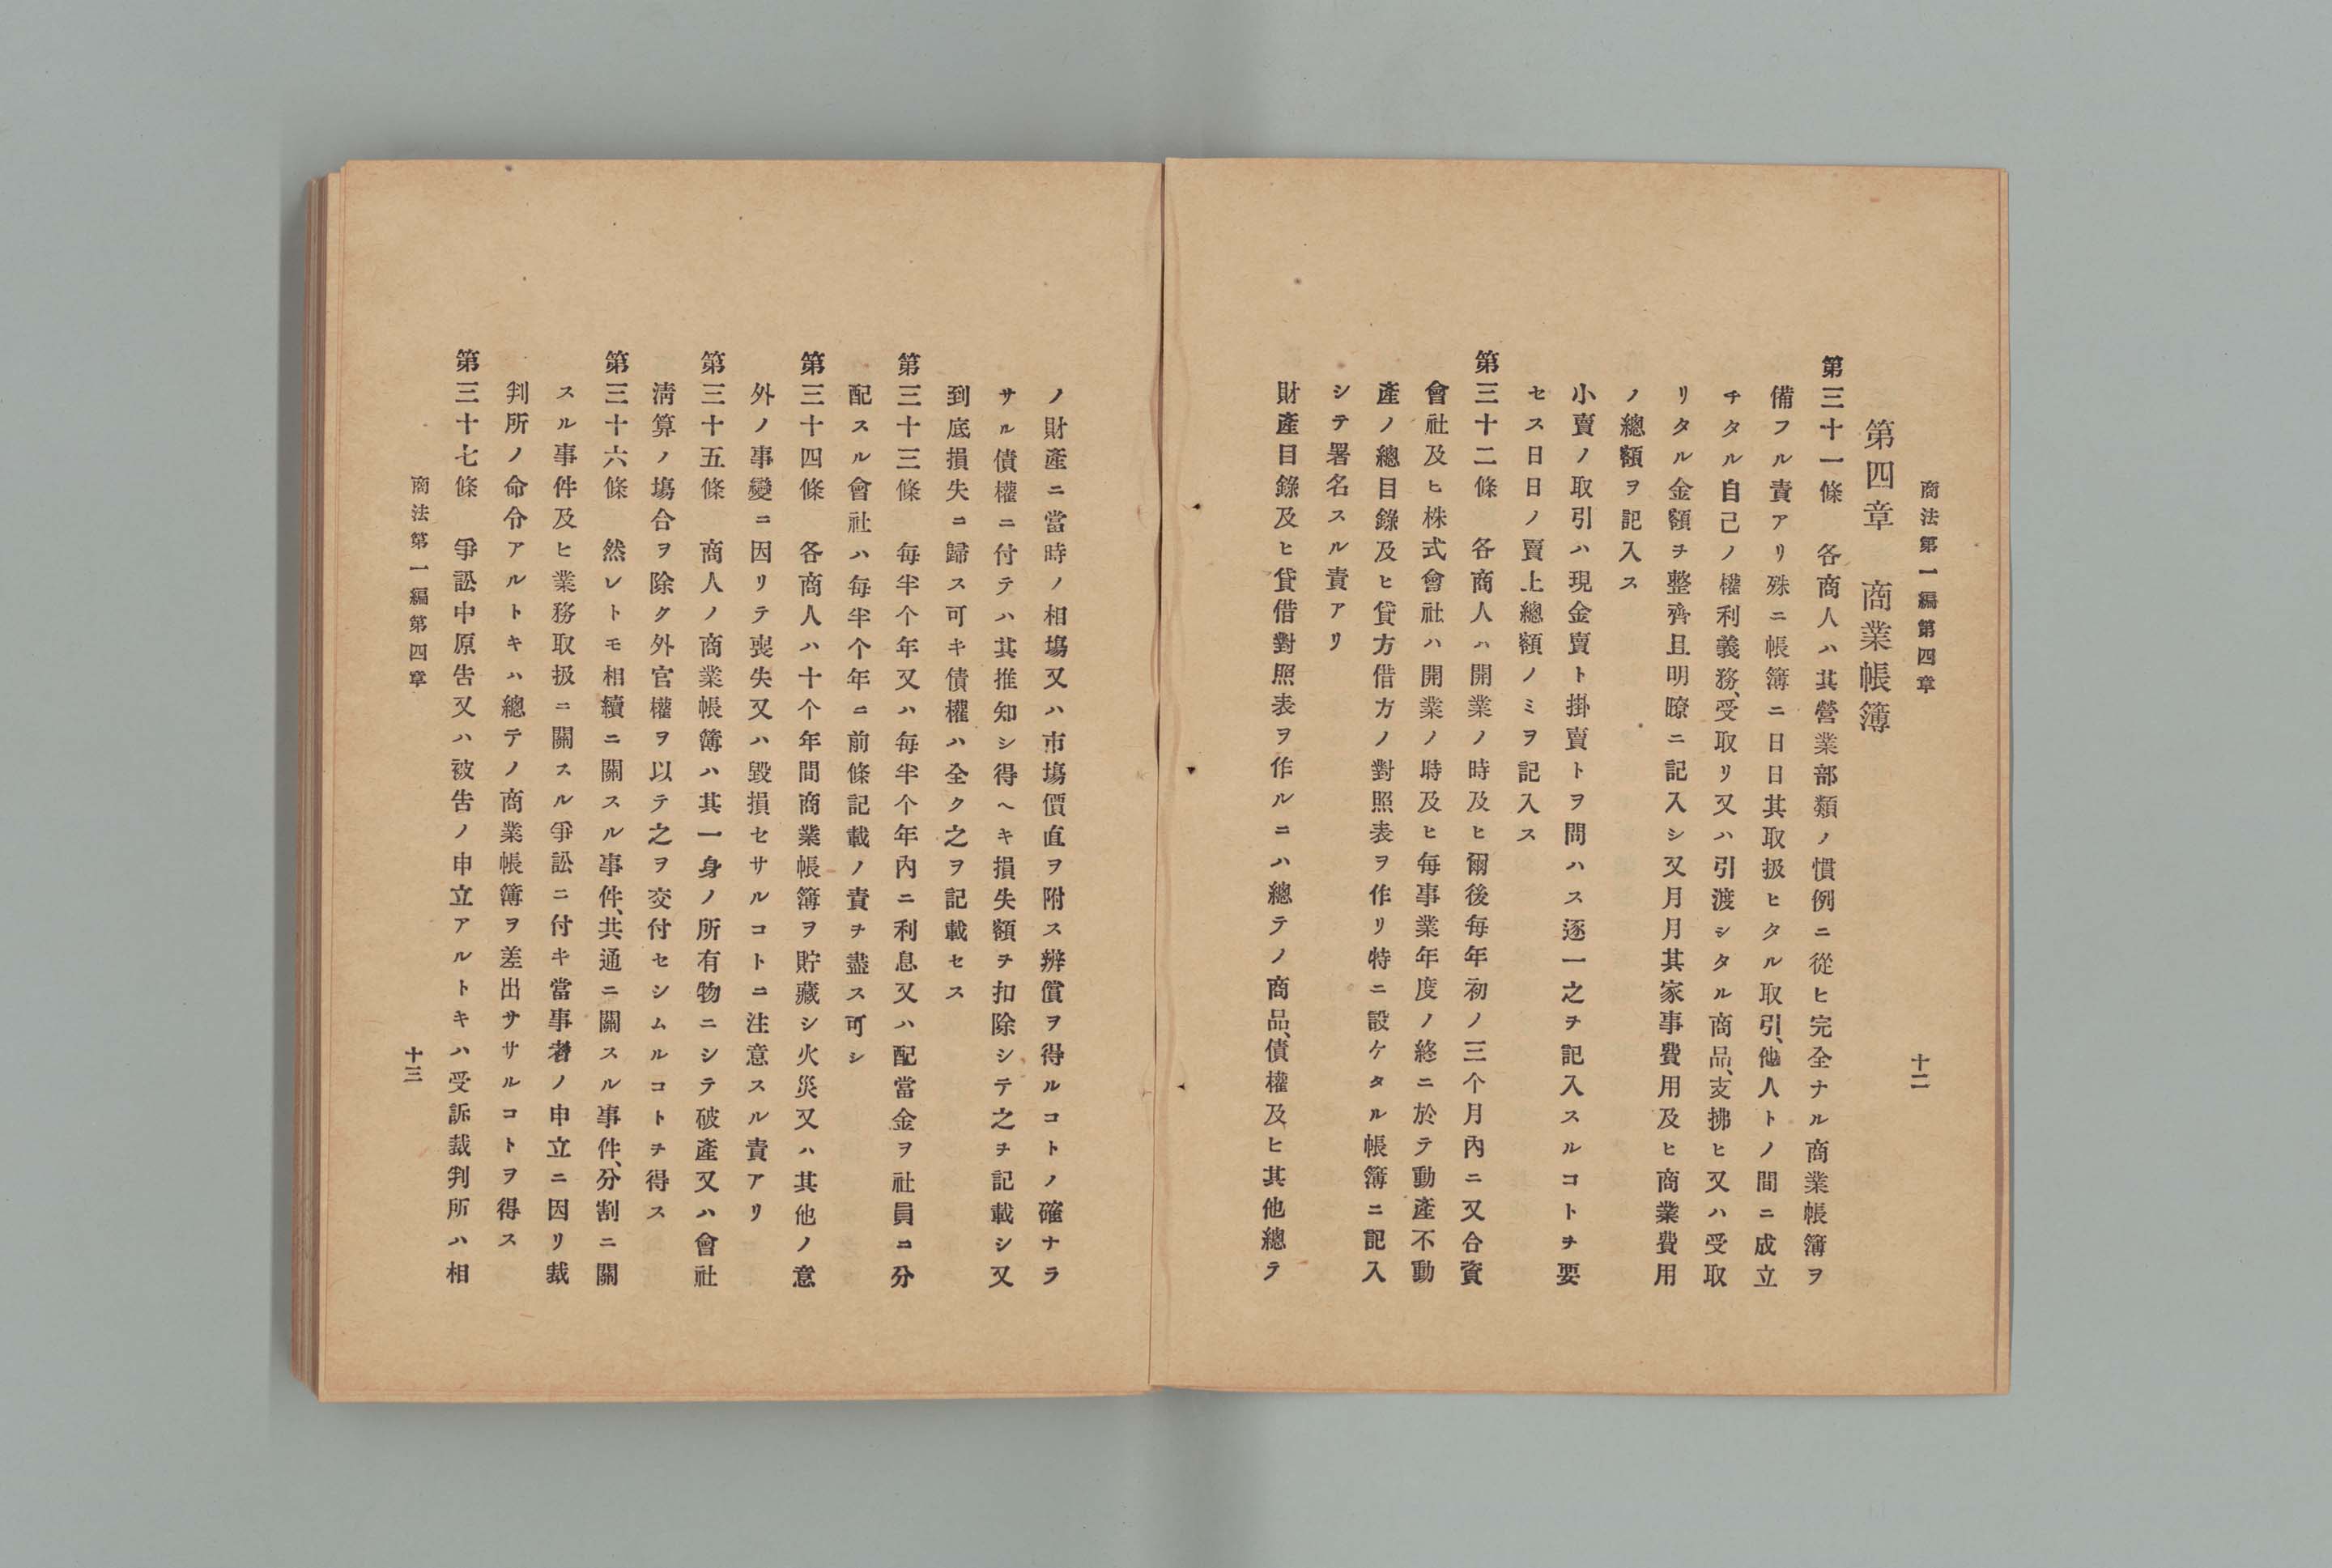 商法第一編第四章
十二
第四章 商業帳簿
第三十一條 各商人ハ其營業部類ノ慣例ニ從ヒ完全ナル商業帳簿ヲ
備フル責アリ殊ニ帳簿ニ日日其取扱ヒタル取引、他人トノ間ニ成立
チタル自己ノ權利義務、受取リ又ハ引渡シタル商品、支拂ヒ又ハ受取
リタル金額ヲ整齊且明瞭ニ記入シ又月月其家事費用及ヒ商業費用
ノ總額ヲ記入ス
小賣ノ取引ハ現金賣ト掛賣トヲ問ハス逐一之ヲ記入スルコトヲ要
セス日日ノ賣上總額ノミヲ記入ス
第三十二條 各商人ハ開業ノ時及ヒ爾後每年初ノ三个月內ニ又合資
會社及ヒ株式會社ハ開業ノ時及ヒ每事業年度ノ終ニ於テ動產不動
產ノ總目錄及ヒ貸方借方ノ對照表ヲ作リ特ニ設ケタル帳簿ニ記入
シテ署名スル責アリ
財產目錄及ヒ貸借對照表ヲ作ルニハ總テノ商品、債權及ヒ其他總テ
ノ財產ニ當時ノ相塲又ハ市塲價直ヲ附ス辨償ヲ得ルコトノ確ナラ
サル債權ニ付テハ其推知シ得ヘキ損失額ヲ扣除シテ之ヲ記載シ又
到底損失ニ歸ス可キ債權ハ全ク之ヲ記載セス
第三十三條 每半个年又ハ每半个年內ニ利息又ハ配當金ヲ社員ニ分
配スル會社ハ每半个年ニ前條記載ノ責ヲ盡ス可シ
第三十四條 各商人ハ十个年間商業帳簿ヲ貯藏シ火災又ハ其他ノ意
外ノ事變ニ因リテ喪失又ハ毀損セサルコトニ注意スル責アリ
第三十五條 商人ノ商業帳簿ハ其一身ノ所有物ニシテ破產又ハ會社
淸算ノ塲合ヲ除ク外官權ヲ以テ之ヲ交付セシムルコトヲ得ス
第三十六條 然レトモ相續ニ關スル事件、共通ニ關スル事件、分割ニ關
スル事件及ヒ業務取扱ニ關スル爭訟ニ付キ當事者ノ申立ニ因リ裁
判所ノ命令アルトキハ總テノ商業帳簿ヲ差出サヽルコトヲ得ス
第三十七條 爭訟中原告又ハ被告ノ申立アルトキハ受訴裁判所ハ相
商法第一編第四章
十三